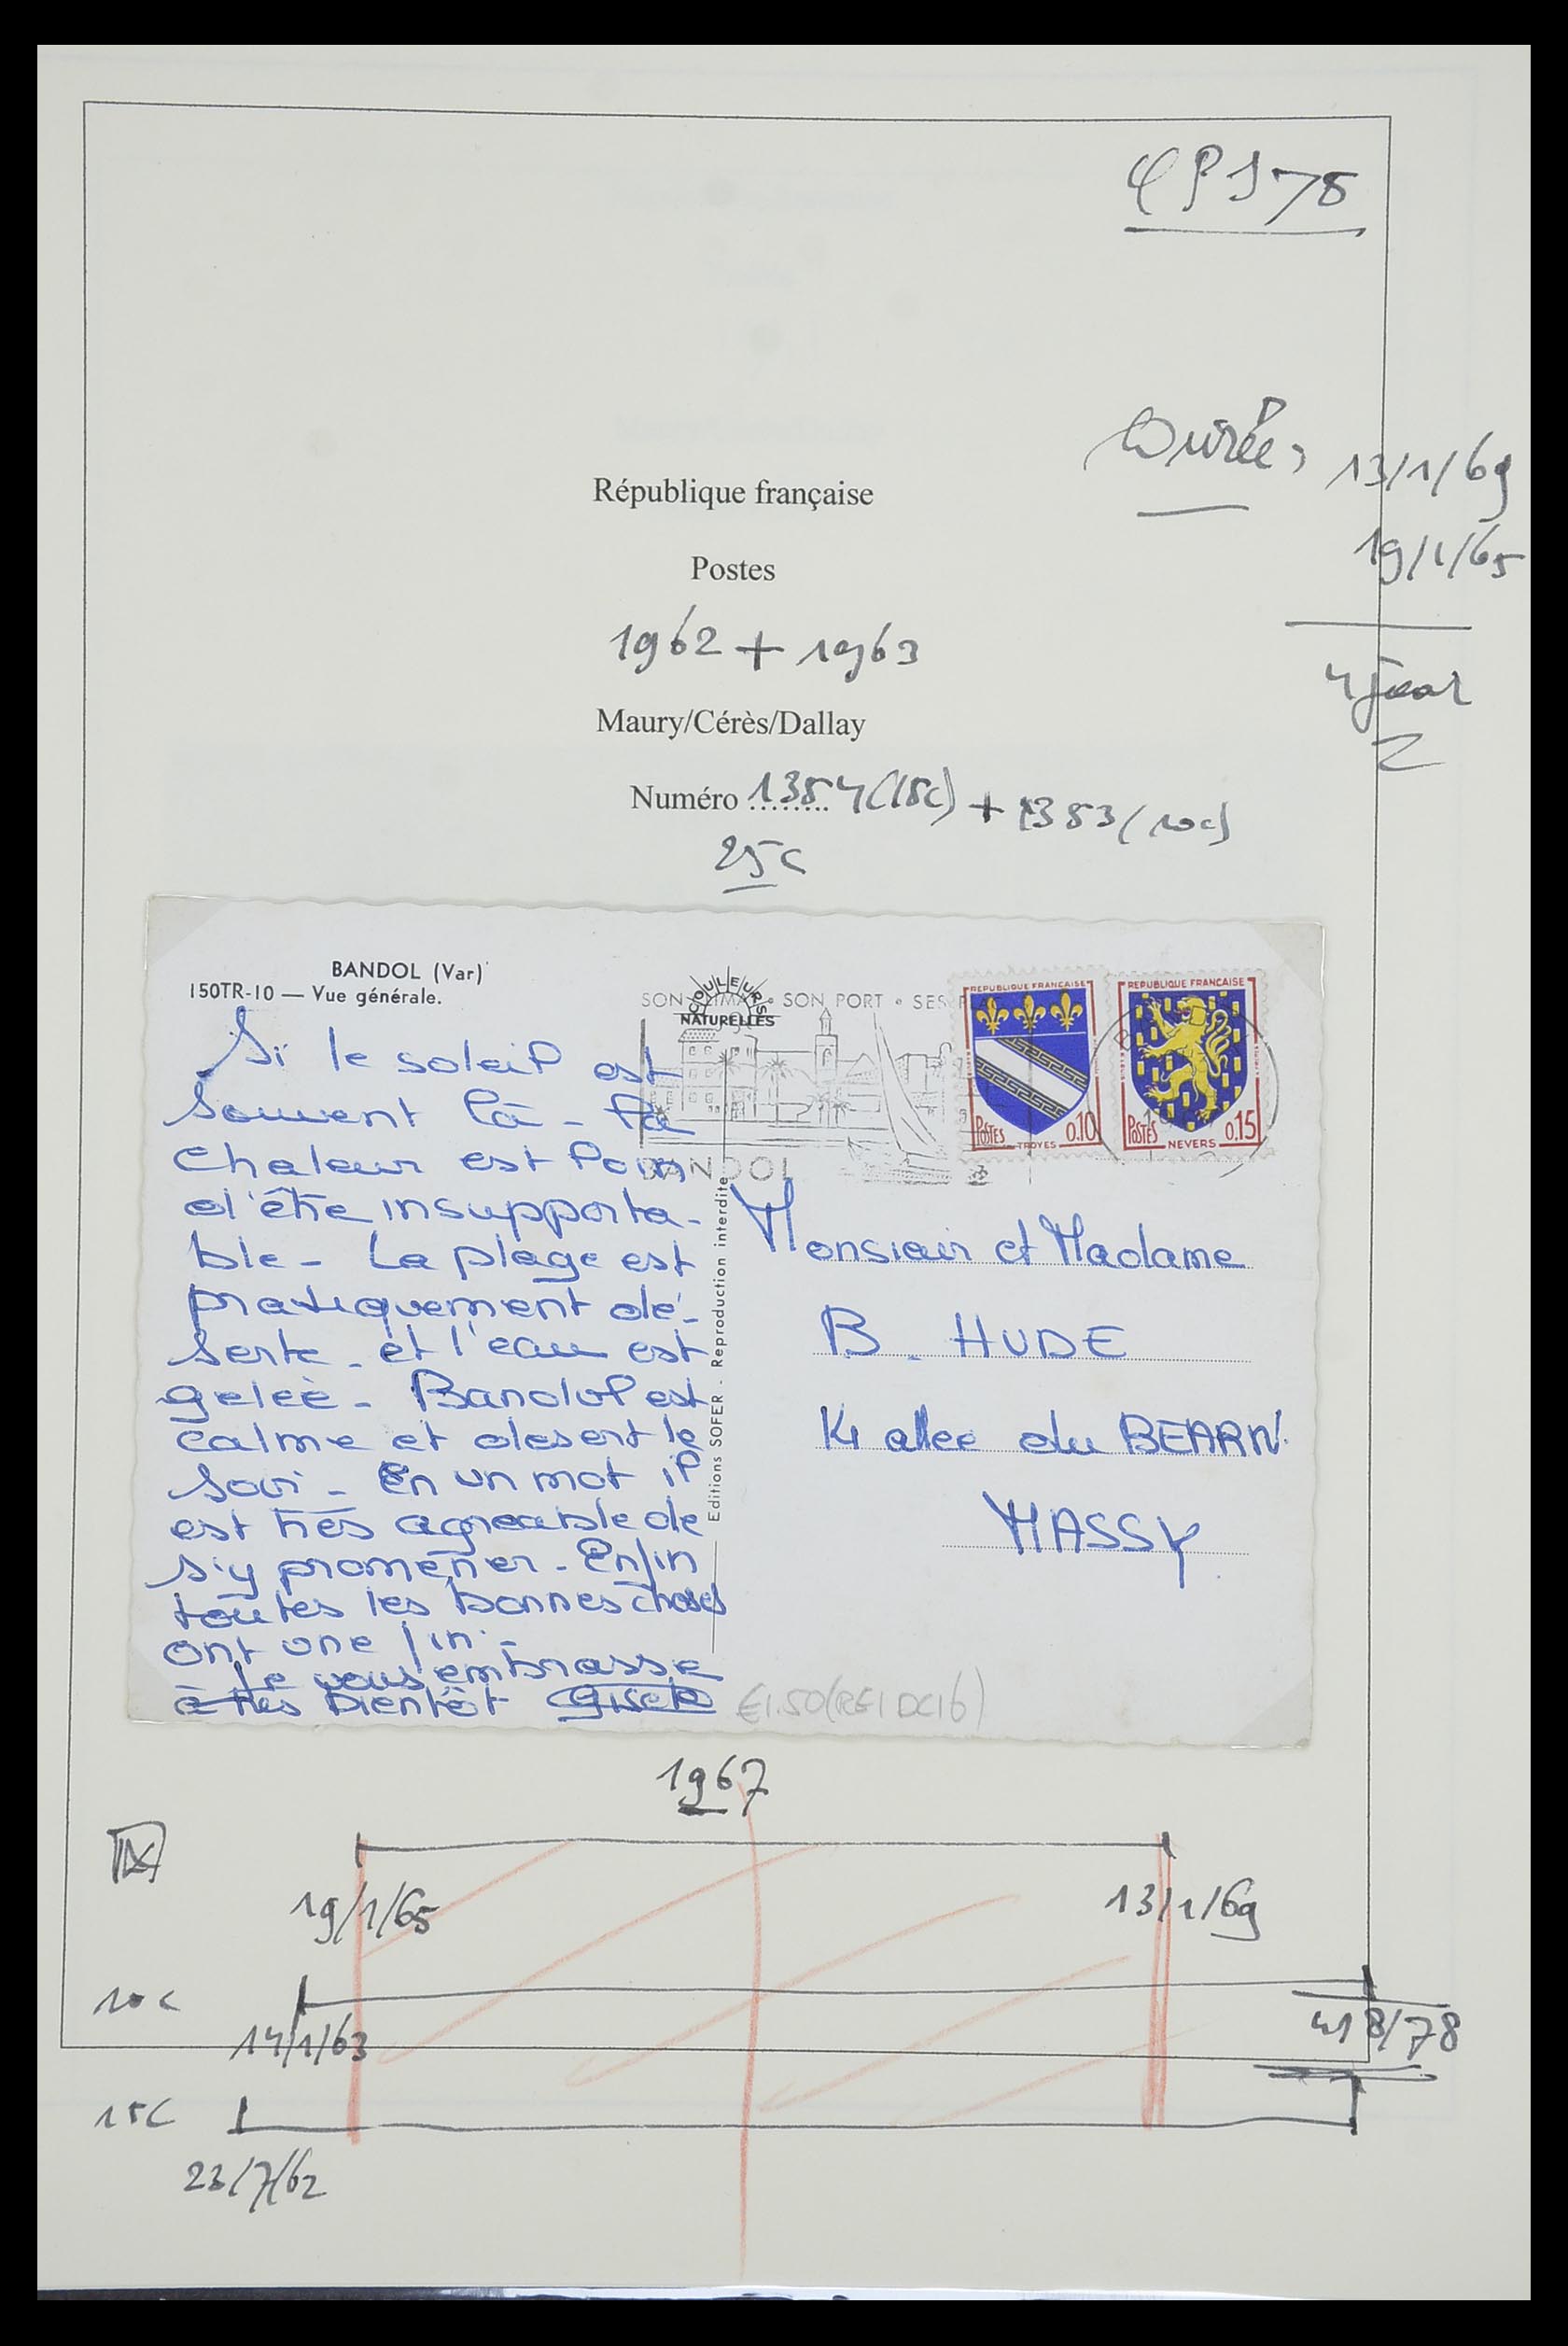 République française
Postes
1962 + 1963
Maury/Cérès/Dallay
Numéro 1354 (15c) + 1353 (10c)
25c
13/1/69
19/1/65
BANDOL (Var)
150TR-10 — Vue générale.
COULEURS
NATURELLES
SON CLIMAT • SON PORT • SES PLAG
BANDOL
REPUBLIQUE FRANÇAISE
POSTES TROYES 0.10
REPUBLIQUE FRANÇAISE
POSTES NEVERS 0.15
Si le soleil est
souvent là - la
chaleur est loin
d'être insupporta-
ble - La plage est
pratiquement dé-
serte - et l'eau est
gelée - Bandol est
calme et desert le
soir - En un mot il
est très agreable de
s'y promener - Enfin
toutes les bonnes choses
ont une fin -
Je vous embrasse
à très bientôt Gisele
Editions SOFER - Reproduction interdite
Monsieur et Madame
B. HUDE
14 allee du BEARN
MASSY
€1.50 (REI DC16)
1967
19/1/65
13/1/69
10c
14/1/63
15c
23/7/62